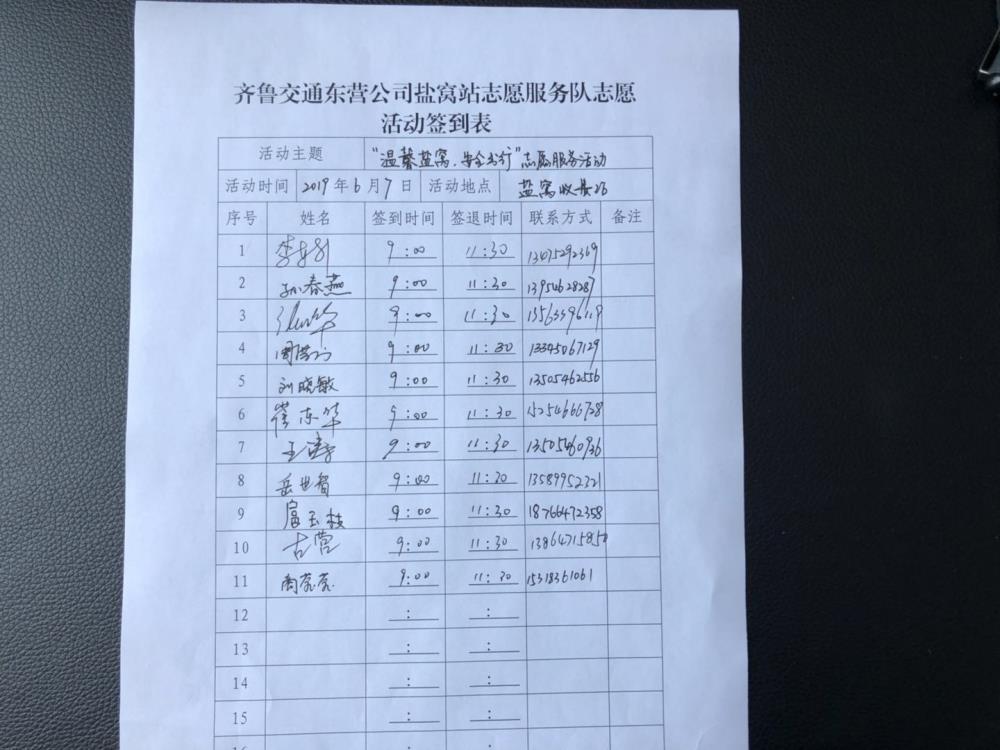 齐鲁交通东营公司盐窝站志愿服务队志愿
活动签到表
活动主题 “温馨盐窝.安全出行”志愿服务活动
活动时间 2019年6月7日 活动地点 盐窝收费站
序号 姓名 签到时间 签退时间 联系方式 备注
1 9:00 11:30 13475292369
2 孙春燕 9:00 11:30 13954628287
3 9:00 11:30
4 9:00 11:30 13345067129
5 刘晓敏 9:00 11:30 13505462556
6 崔东华 9:00 11:30 15254666728
7 王涛 9:00 11:30 13505460936
8 岳世智 9:00 11:30 13589952321
9 扈玉枝 9:00 11:30 18766472358
10 古营 9:00 11:30 13864715850
11 周蕊蕊 9:00 11:30 15318361061
12 : :
13 : :
14 : :
15 : :